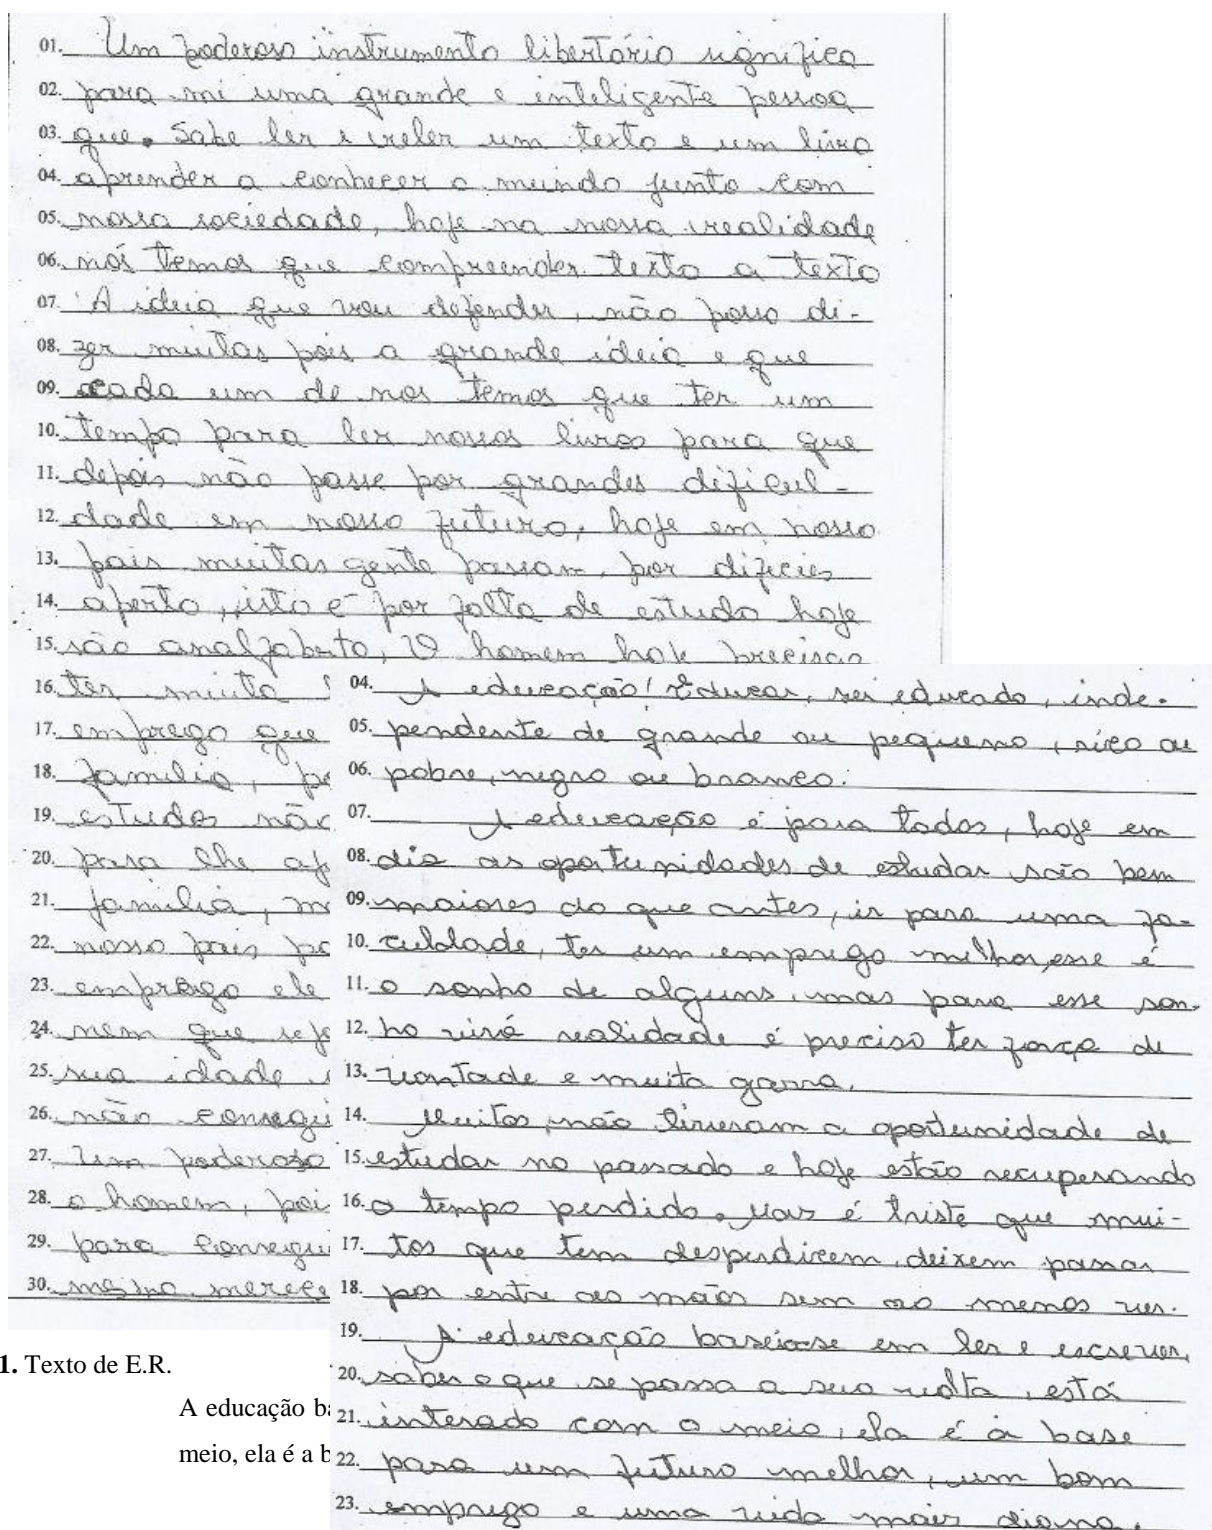 01. Um poderoso instrumento libertário significa
02. para mi uma grande e inteligente pessoa
03. que. Sabe ler e reler um texto e um livro
04. aprender a conhecer o mundo junto com
05. nossa sociedade, hoje na nossa realidade
06. nós temos que compreender texto a texto
07. A ideia que vou defender, não posso di-
08. zer muitas pois a grande ideia e que
09. cada um de nos temos que ter um
10. tempo para ler nossos livros para que
11. depois não passe por grandes dificul-
12. dade em nosso futuro, hoje em nosso
13. pais muitas gente passam, por dificies
14. aperto, isto é por falta de estudo hoje
15. são analfabeto, O homem hoje precisar
16. ter muita
17. emprego que
18. familia, pe
19. estudos não
20. para lhe aj
21. familia, m
22. nosso pais, po
23. emprego ele
24. nem que seja
25. sua idade
26. não consegui
27. Um poderoso
28. o homem, poi
29. para consegui
30. mesmo merece
04. A educação! Educar, ser educado, inde-
05. pendente de grande ou pequeno, rico ou
06. pobre, negro ou branco.
07. A educação é para todos, hoje em
08. dia as oportunidades de estudar são bem
09. maiores do que antes, ir para uma fa-
10. culdade, ter um emprego melhor, esse é
11. o sonho de alguns, mas para esse son-
12. ho virá realidade é preciso ter força de
13. vontade e muita garra.
14. Muitos, não tiveram a oportunidade de
15. estudar no passado e hoje estão recuperando
16. o tempo perdido. Mas é triste que mui-
17. tos que tem desperdicem, deixem passar
18. por entre as mãos sem ao menos ver.
19. A educação baseia-se em ler e escrever,
20. saber o que se passa a sua volta, está
21. interado com o meio, ela é a base
22. para um futuro melhor, um bom
23. emprego e uma vida mais digna.
1. Texto de E.R.
A educação ba
meio, ela é a b